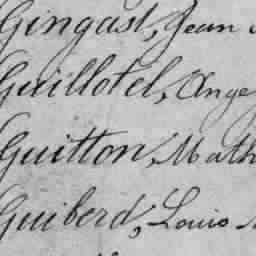 Gingast, Jean
Guillotel, Ange
Guitton, Math
Guiberd, Louis